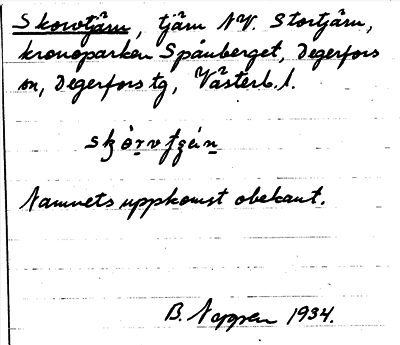 Skorvtjärn, tjärn NV. Stortjärn,
kronoparken Spånberget, Degerfors
sn, Degerfors tg, Västerb. l.
Namnets uppkomst obekant.
B. Noppen 1934.